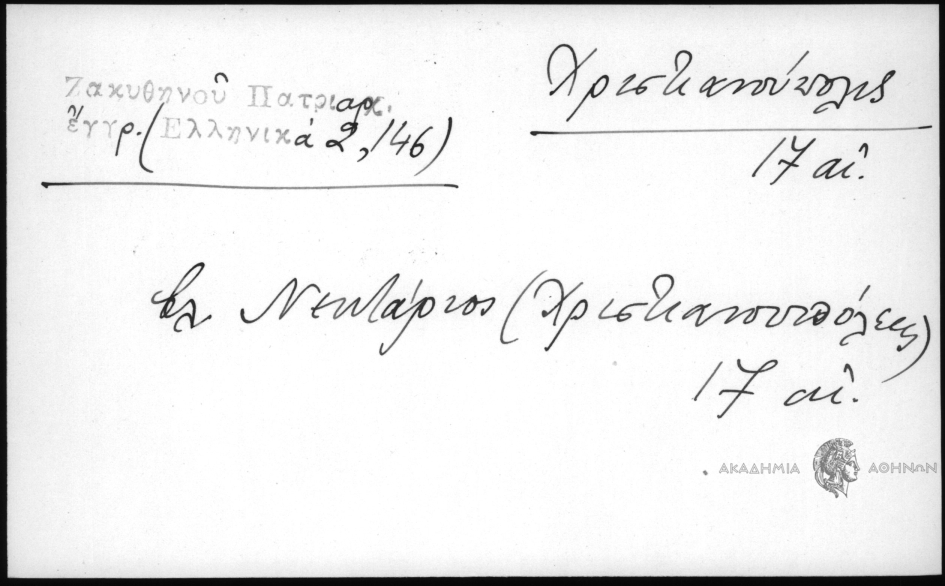 Ζακυθηνοῦ Πατριαρχ.
ἔγγρ. (Ἑλληνικά 2, 146)
Χριστιανούπολις
17 αἰ.
βλ. Νεκτάριος (Χριστιανουπόλεως)
17 αἰ.
ΑΚΑΔΗΜΙΑ ΑΘΗΝΩΝ